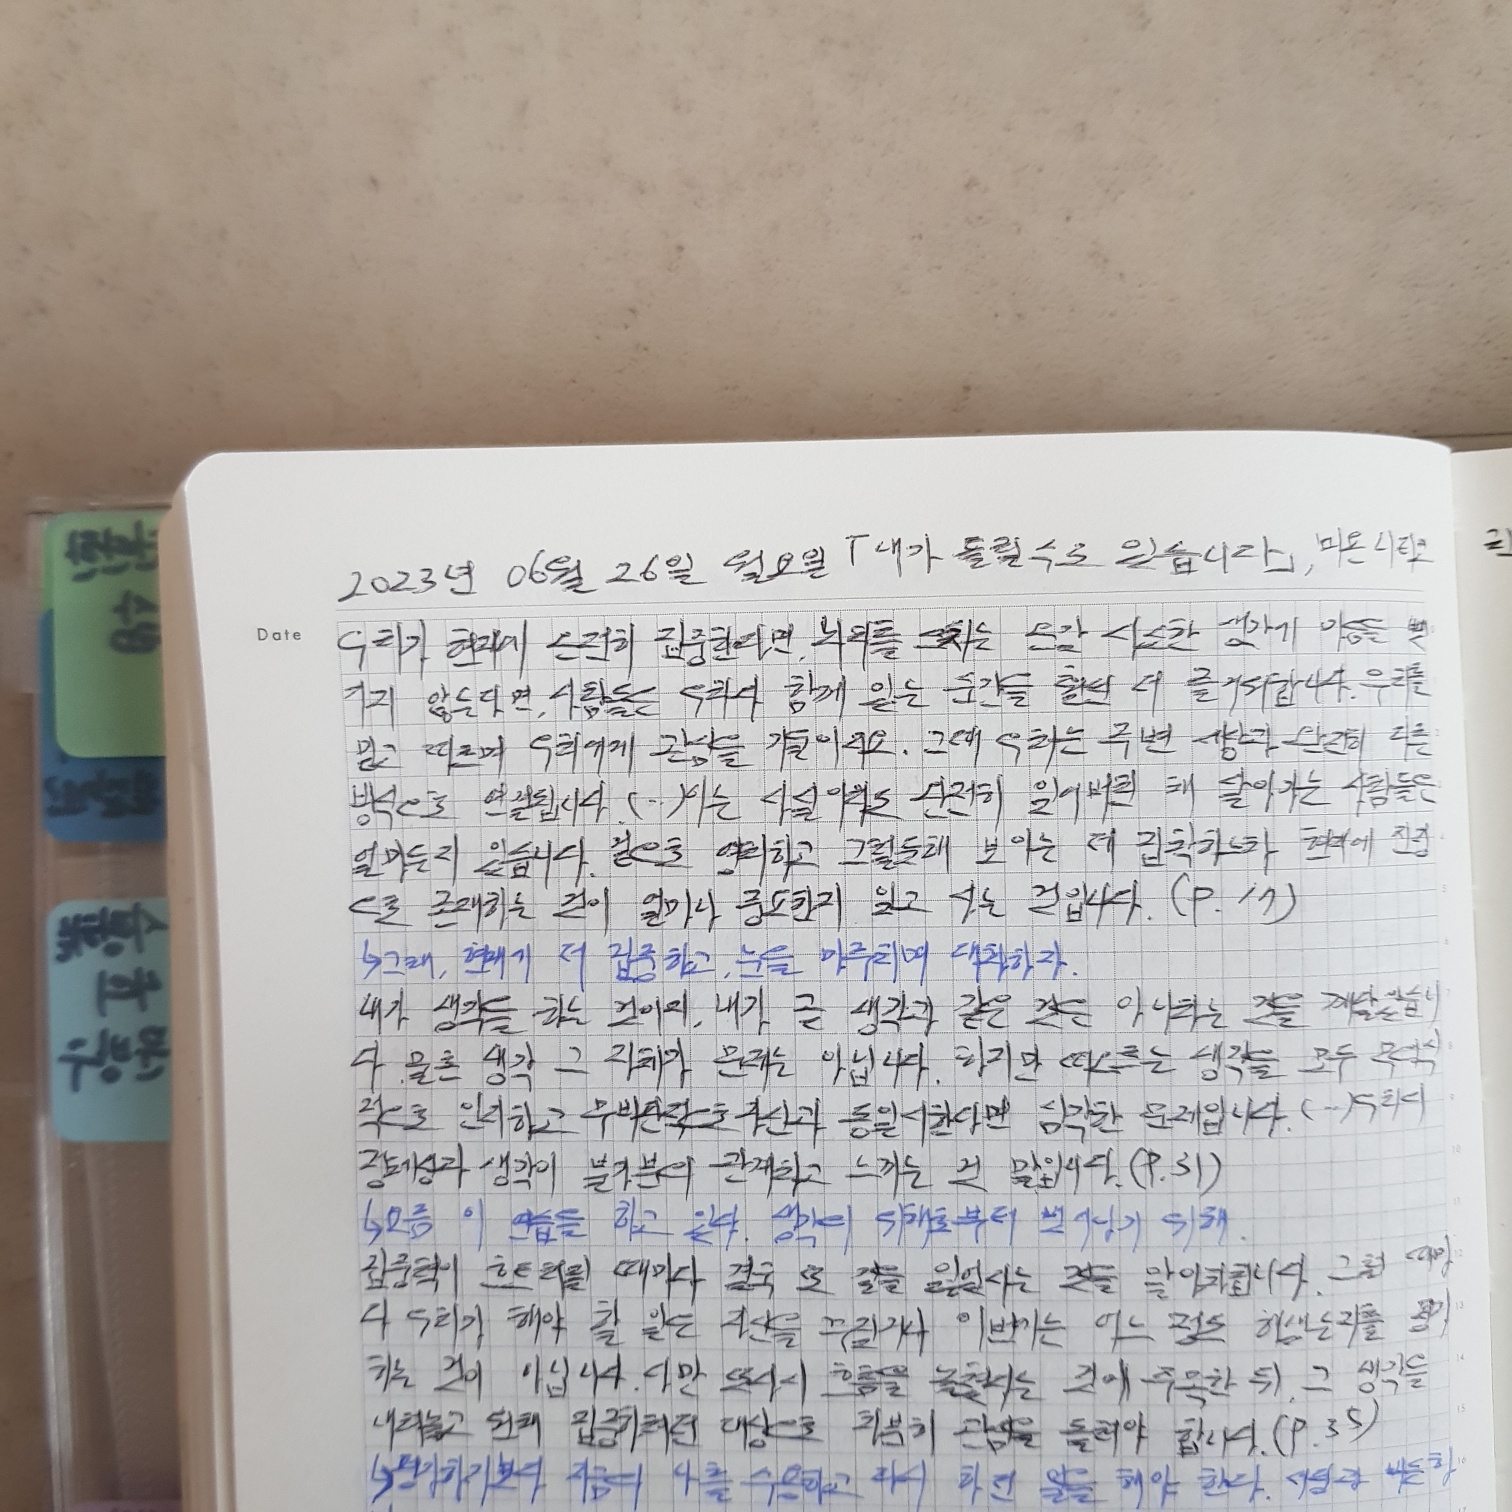 2023년 06월 26일 월요일 「내가 틀릴 수도 있습니다」,
Date
우리가 현재에 온전히 집중한다면, 뇌리를 스치는 온갖 시소한 생각에 마음을 뺏
기지 않는다면, 사람들은 우리와 함께 있는 순간을 훨씬 더 즐거워합니다. 우리를
믿고 따르며 우리에게 관심을 기울이지요. 그때 우리는 주변 세상과 완전히 다른
방식으로 연결됩니다. (…) 이는 사실 아직도 완전히 잊어버린 채 살아가는 사람들은
얼마든지 있습니다. 겉으로 영리하고 그럴듯해 보이는 데 집착하느라 현재에 진정
으로 존재하는 것이 얼마나 중요한지 잊고 사는 것입니다. (P. 17)
↳그래, 현재에 더 집중하고, 눈을 마주치며 대화하자.
내가 생각을 하는 것이지, 내가 곧 생각과 같은 것은 아니라는 것을 깨달았습니
다. 물론 생각 그 자체가 문제는 아닙니다. 하지만 떠오르는 생각을 모두
적으로 인지하고 무비판적으로 자신과 동일시한다면 심각한 문제입니다. (…) 우리의
정체성과 생각이 불가분의 관계라고 느끼는 것 말입니다. (P. 31)
↳요즘 이 연습을 하고 있다. 생각의 위해로부터 벗어나기 위해.
집중력이 흐트러질 때마다 결국 또 길을 잃었다는 것을 알아차립니다. 그럴 때마
다 우리가 해야 할 일은 자신을 꾸짖거나 이번에는 어느 정도 해냈는지를
하는 것이 아닙니다. 다만 또다시 흐름을 놓쳤다는 것에 주목한 뒤, 그 생각을
내려놓고 원래 집중하려던 대상으로 차분히 관심을 돌려야 합니다. (P. 35)
↳평가하기보다 지금의 나를 수용하고 다시 하던 일을 해야 한다.
환
수
송
호
박